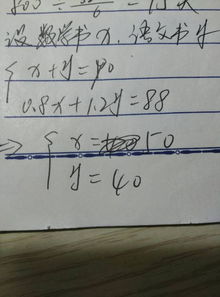 设数学书x,语文书y
{ x+y=90
0.8x+1.2y=88
⇒ { x=50
y=40